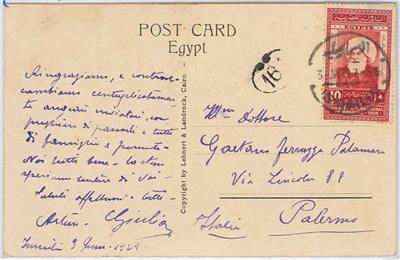 POST CARD
Egypt
Ringraziamo, e contrac-
cambiamo centuplicatamen-
te auguri inviatici, con
preghiera di passarli a tutti
di famiglia e parenti.
Noi tutti bene. Lo stesso
speriamo sentire di voi.
Saluti affettuosi a tutti.
Arturo Giulia
1929
Copyright by Lehnert & Landrock, Cairo
16
EGYPTE
10
Dottore
Gaetano Ferruzza Palamara
Via Lincoln 88
Palermo
Italia